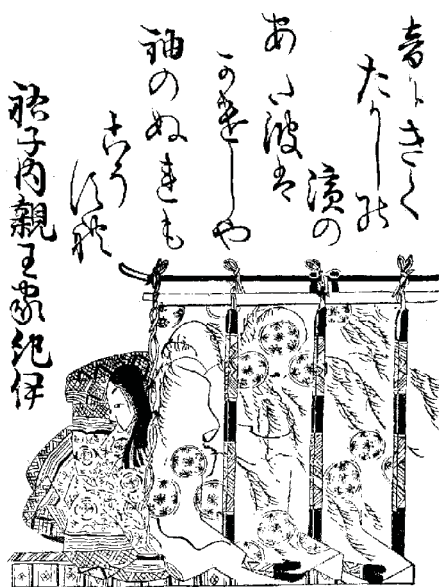 音にきく
たかしの
濱の
あた波は
かけしや
袖のぬれも
こそ
すれ
祐子内親王家紀伊